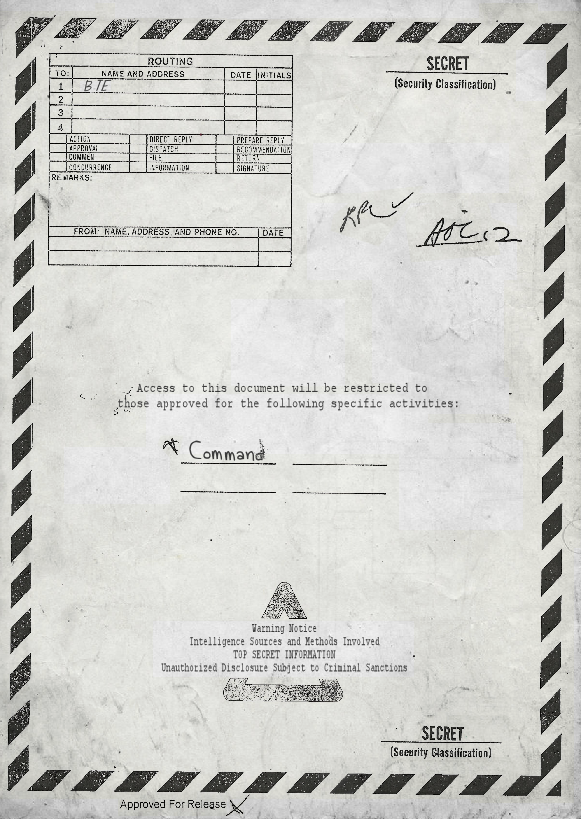 ROUTING
TO: NAME AND ADDRESS DATE INITIALS
1 BTE
2
3
4
ACTION DIRECT REPLY PREPARE REPLY
APPROVAL DISPATCH RECOMMENDATION
COMMEN FILE RETURN
CONCURRENCE INFORMATION SIGNATURE
REMARKS:
FROM: NAME, ADDRESS, AND PHONE NO. DATE
SECRET
(Security Classification)
Access to this document will be restricted to
those approved for the following specific activities:
Command
A
Warning Notice
Intelligence Sources and Methods Involved
TOP SECRET INFORMATION
Unauthorized Disclosure Subject to Criminal Sanctions
SECRET
(Security Classification)
Approved For Release